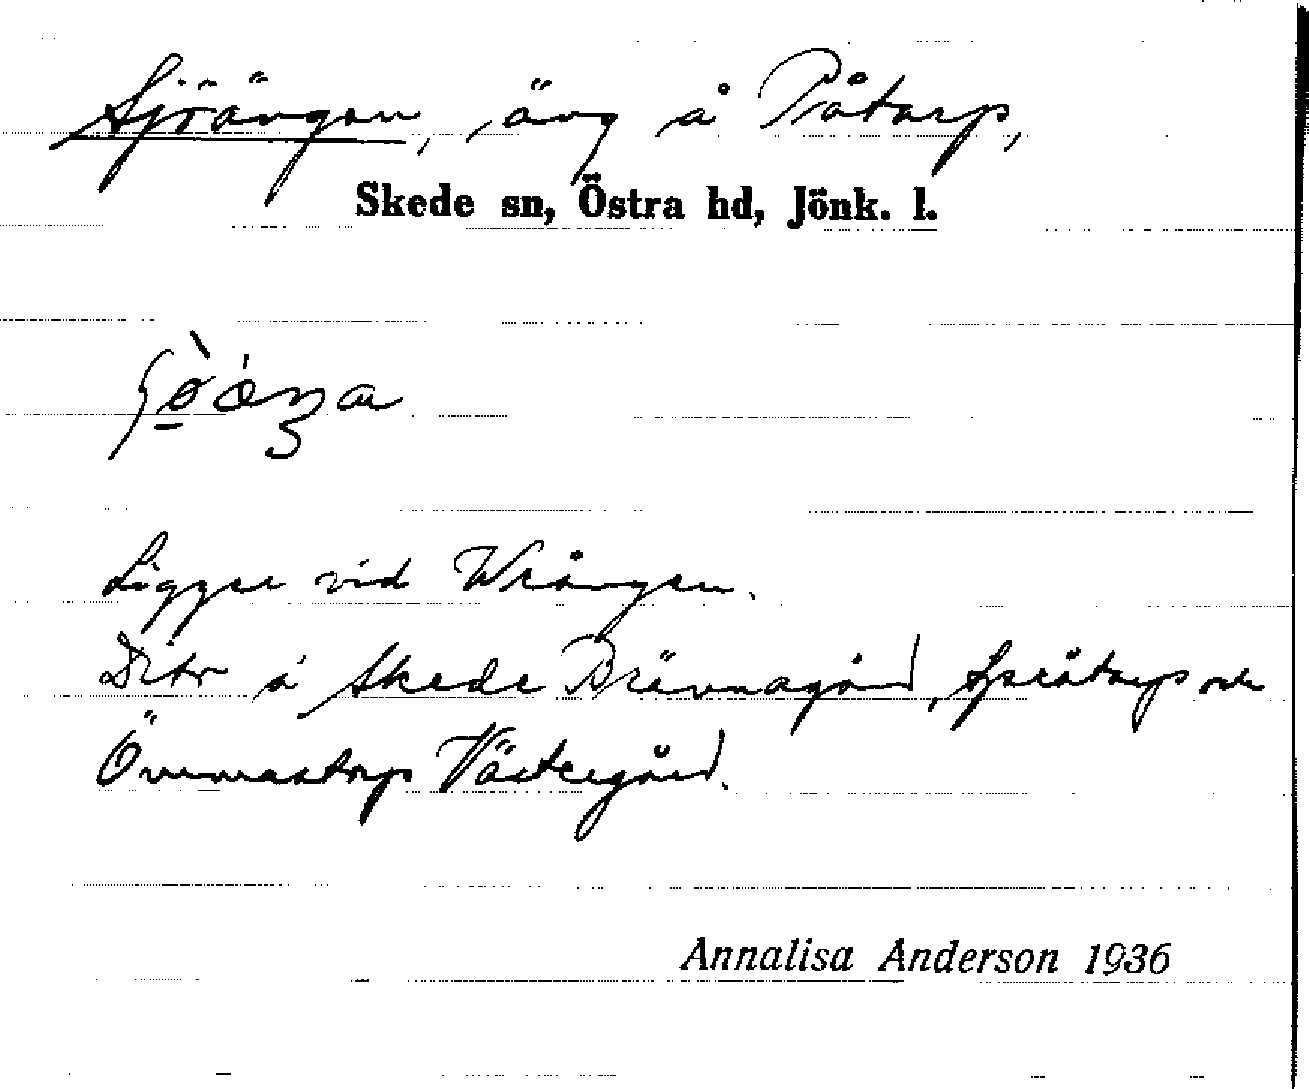 Sjöängen, äng å Påtarp,
Skede sn, Östra hd, Jönk. l.
Ligger vid Wrången.
Dito å Skede Brävnagård, Språtarp och
Övernastorp Västergård.
Annalisa Anderson 1936